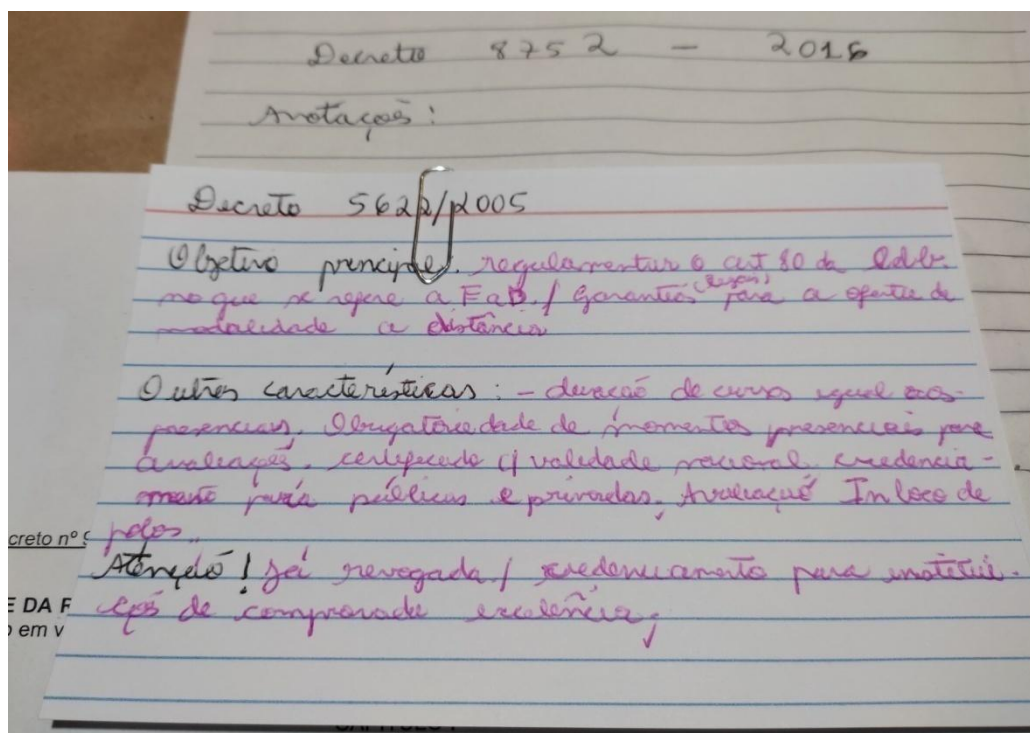 Decreto 8752 - 2016
Anotações:
Decreto 5622/2005
Objetivo principal. regulamentar o art 80 da Ldb.
no que se refere a EaD. / Garantias para a oferta de
modalidade a distância
Outras características: - duração de cursos igual aos
presenciais. Obrigatoriedade de momentos presenciais para
avaliações. certificado c/ validade nacional. credencia-
mento para públicas e privadas. Avaliação In loco de
polos.
Atenção! já revogada / credenciamento para institui-
ções de comprovada excelência;
creto nº 9
E DA F
o em v